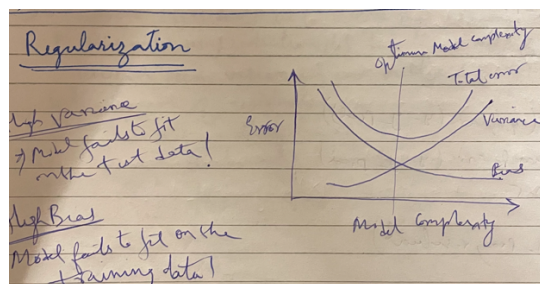 Regularization
High Variance
→ Model fails to fit
on the test data!
High Bias
Model fails to fit on the
training data!
Optimum Model complexity
Total error
Variance
Bias
Error
Model Complexity